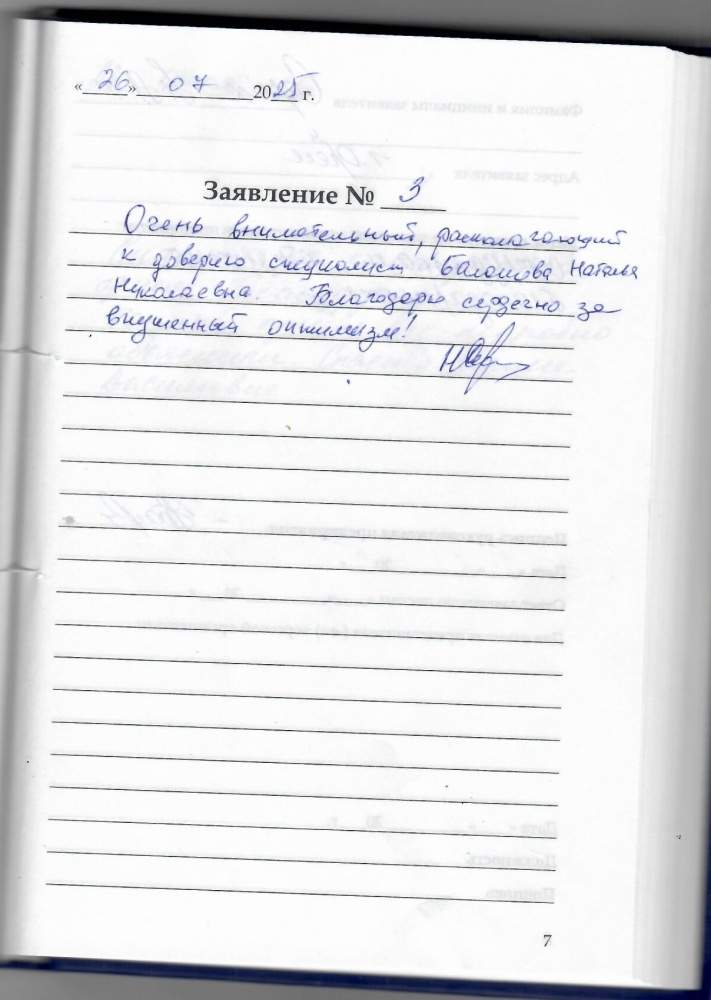 «26» 07 2025 г.
Заявление № 3
Очень внимательный, располагающий
к доверию специалист Наталья
Николаевна. Благодарю сердечно за
внушенный оптимизм!
7